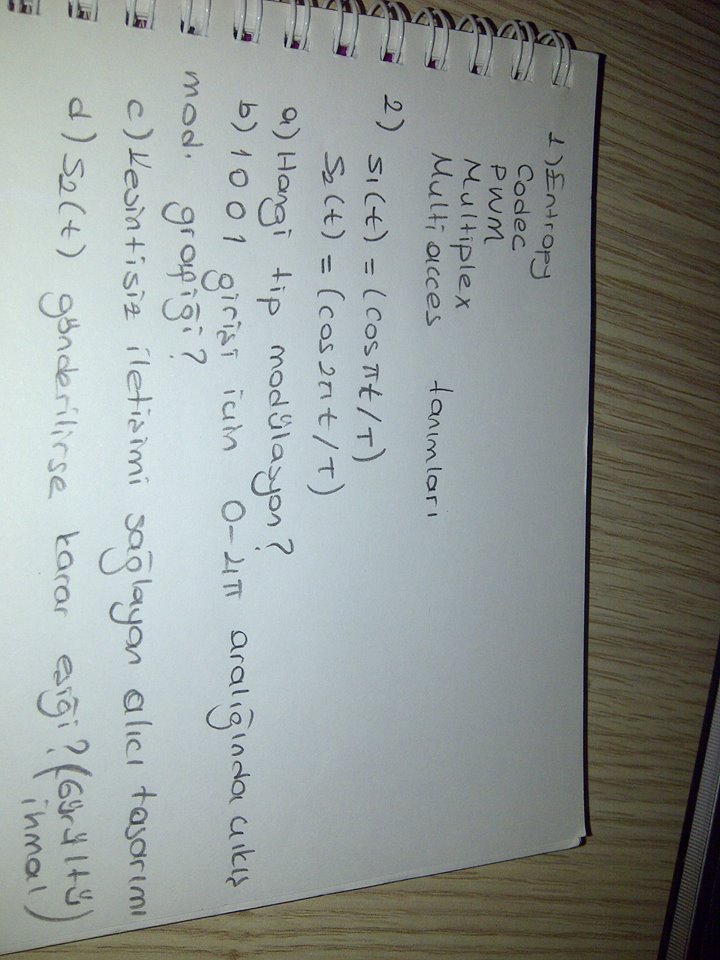 1) Entropy
Codec
PWM
Multiplex
Multi acces tanımları
2) S1(t) = (cosπt/T)
S2(t) = (cos2πt/T)
a) Hangi tip modülasyon?
b) 1001 girişi için 0-4π aralığında çıkış
mod. grafiği?
c) Kesintisiz iletişimi sağlayan alıcı tasarımı
d) S2(t) gönderilirse karar eşiği? (Gürültü
ihmal)